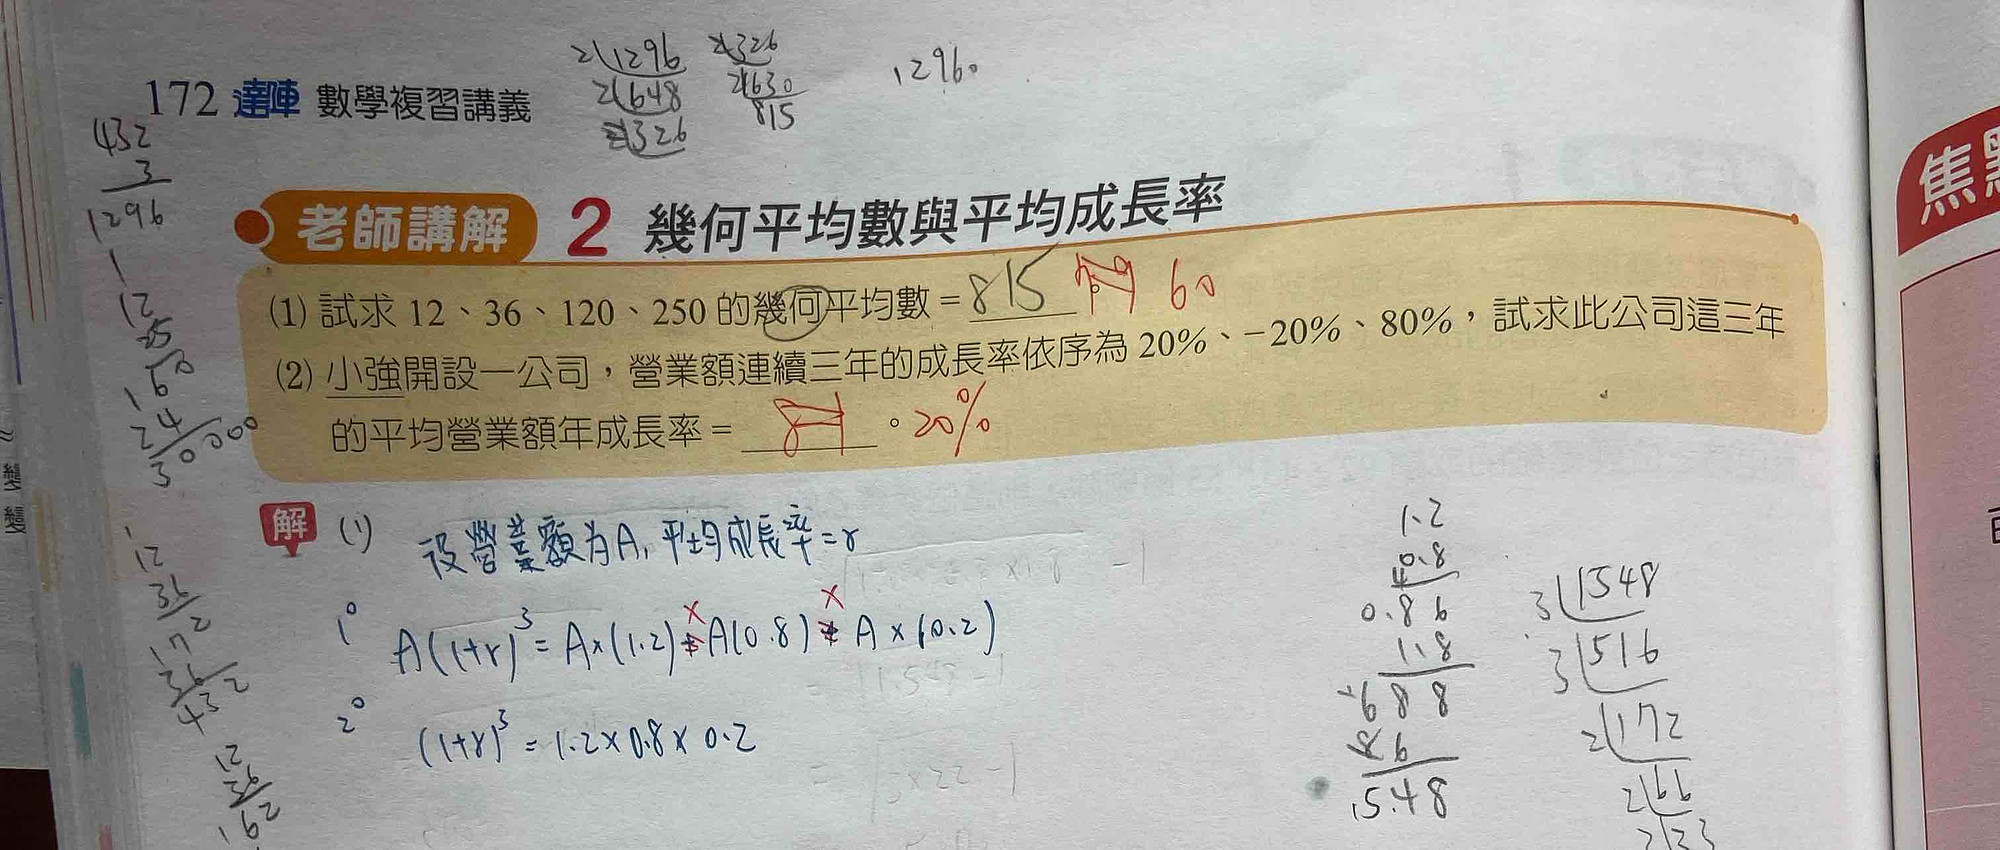 172 達陣 數學複習講義
2 1296
2 648
2 326
2 326
2 630
815
12960
432
3
1296
老師講解 2 幾何平均數與平均成長率
(1) 試求 12、36、120、250 的幾何平均數 = 815 60
(2) 小強開設一公司,營業額連續三年的成長率依序為 20%、-20%、80%,試求此公司這三年
的平均營業額年成長率 = 。20%
解 (1) 設營業額為A,平均成長率=r
1° A(1+r)³ = A×(1.2) × A(0.8) × A×(0.2)
2° (1+r)³ = 1.2×0.8×0.2
1.2
0.8
0.86
1.8
688
86
15.48
3 1548
3 516
2 172
2 66
2 33
12
36
72
36
432
12
36
162
焦